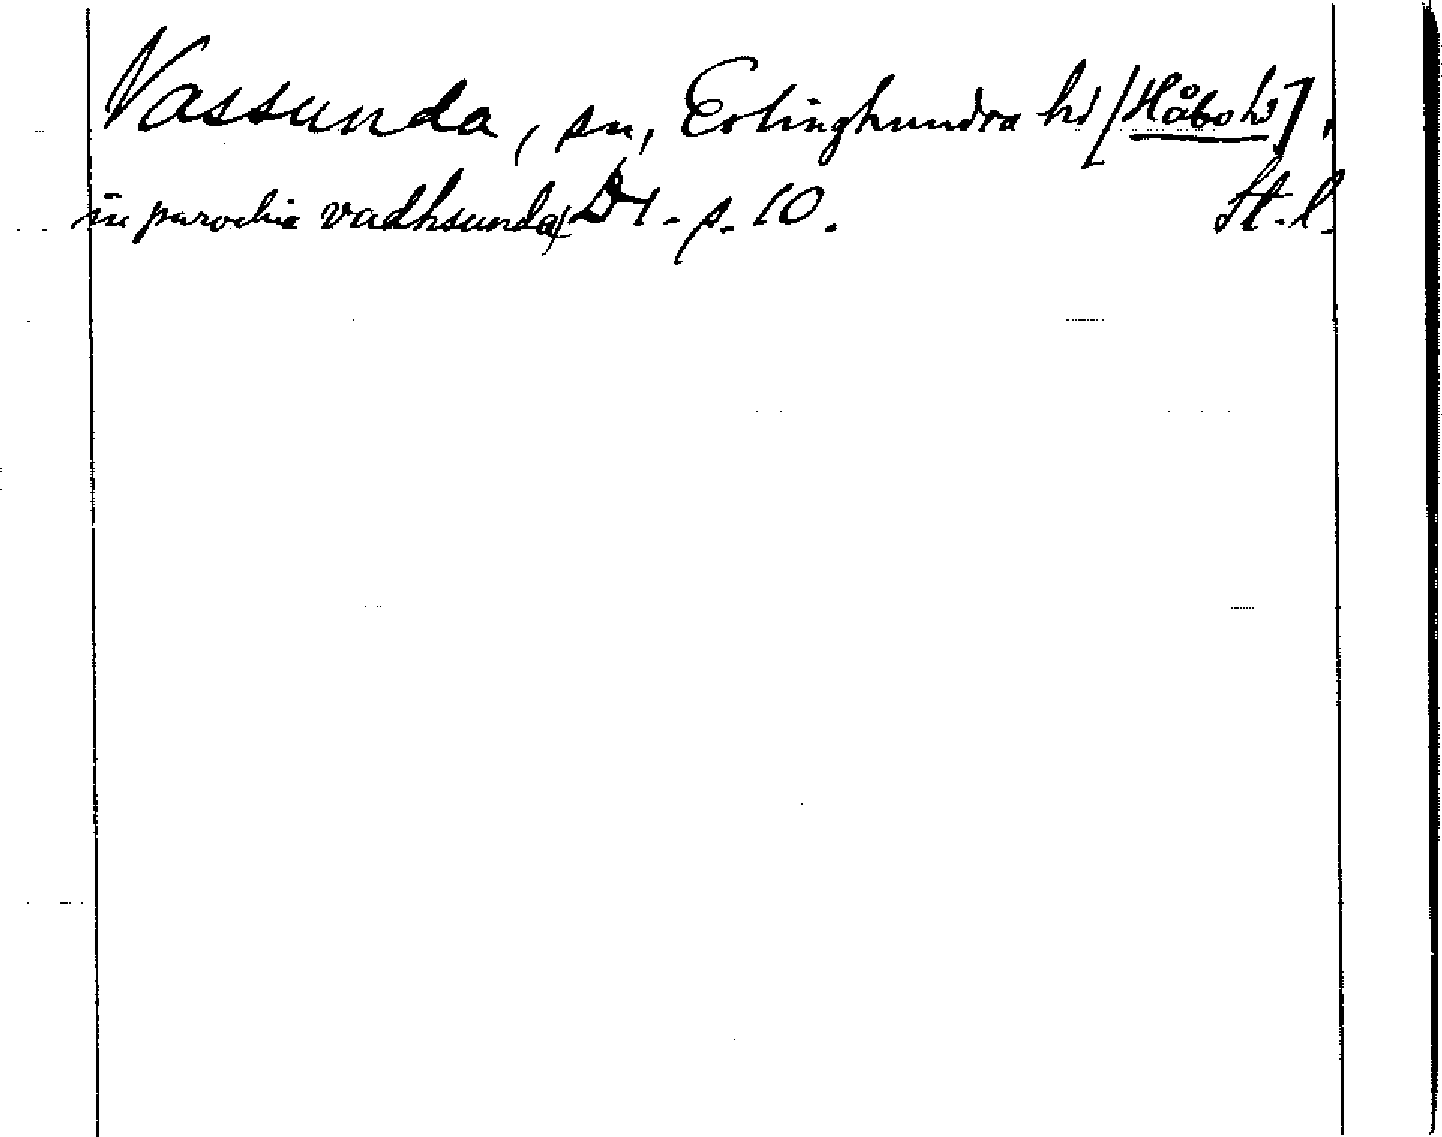 Vassunda, sn, Erlinghundra hd [Håbo hd],
in parochia vadhsunda, D 1. s. 10. St. l.